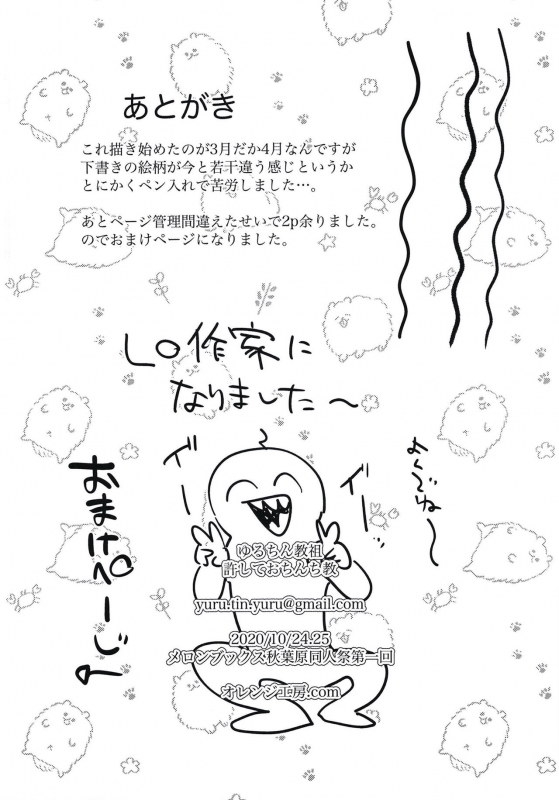 あとがき
これ描き始めたのが3月だか4月なんですが
下書きの絵柄が今と若干違う感じというか
とにかくペン入れで苦労しました…。
あとページ管理間違えたせいで2p余りました。
のでおまけページになりました。
LO作家に
なりました〜
イエー
イエー
おまけぺーじ
ゆるちん教祖
許しておちんち教
yuru.tin.yuru@gmail.com
2020/10/24.25
メロンブックス秋葉原同人祭第一回
オレンジ工房.com